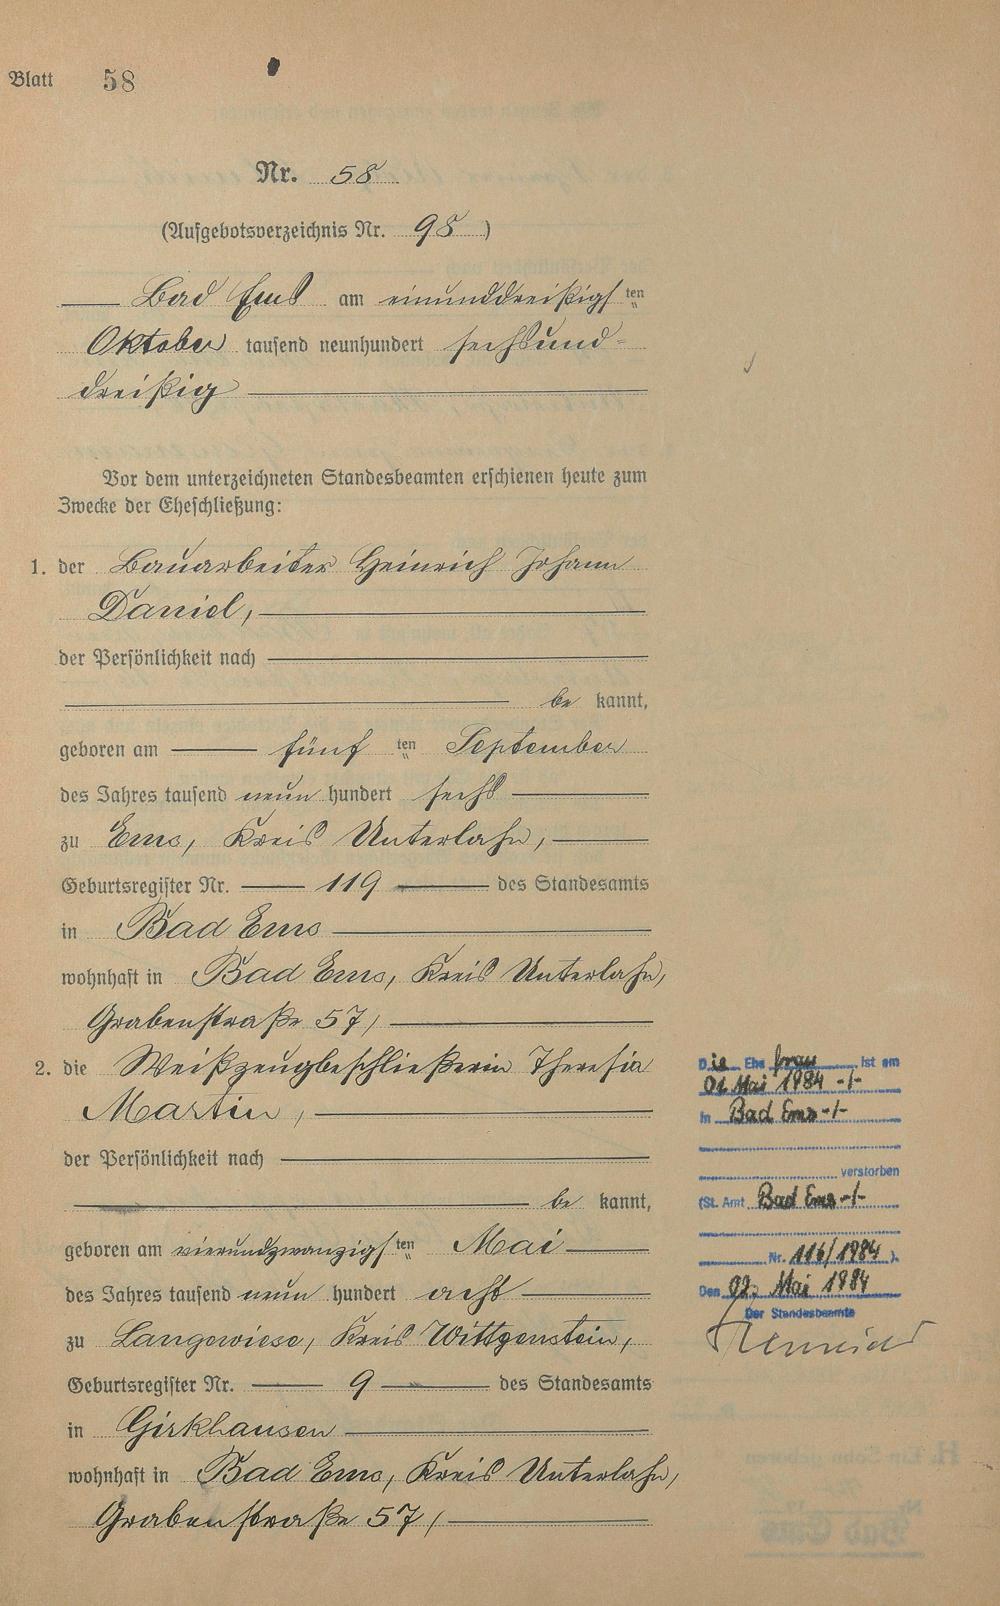 Blatt 58
Nr. 58
(Aufgebotsverzeichnis Nr. 98)
Bad Ems am einunddreißigsten
Oktober tausend neunhundert sechsund-
dreißig
Vor dem unterzeichneten Standesbeamten erschienen heute zum
Zwecke der Eheschließung:
1. der Bauarbeiter Heinrich Johann
Daniel,
der Persönlichkeit nach
be kannt,
geboren am fünf ten September
des Jahres tausend neun hundert sechs
zu Ems, Kreis Unterlahn,
Geburtsregister Nr. 119 des Standesamts
in Bad Ems
wohnhaft in Bad Ems, Kreis Unterlahn,
Grabenstraße 57,
2. die Weißzeugbeschließerin Theresia
Martin,
der Persönlichkeit nach
be kannt,
geboren am vierundzwanzigsten Mai
des Jahres tausend neun hundert acht
zu Langewiese, Kreis Wittgenstein,
Geburtsregister Nr. 9 des Standesamts
in Girkhausen
wohnhaft in Bad Ems, Kreis Unterlahn,
Grabenstraße 57,
Die Ehefrau ist am
Mai 1984 -/-
in Bad Ems -/-
verstorben
(St. Amt Bad Ems -/-
Nr. 116/1984 ).
Den Mai 1984
Der Standesbeamte